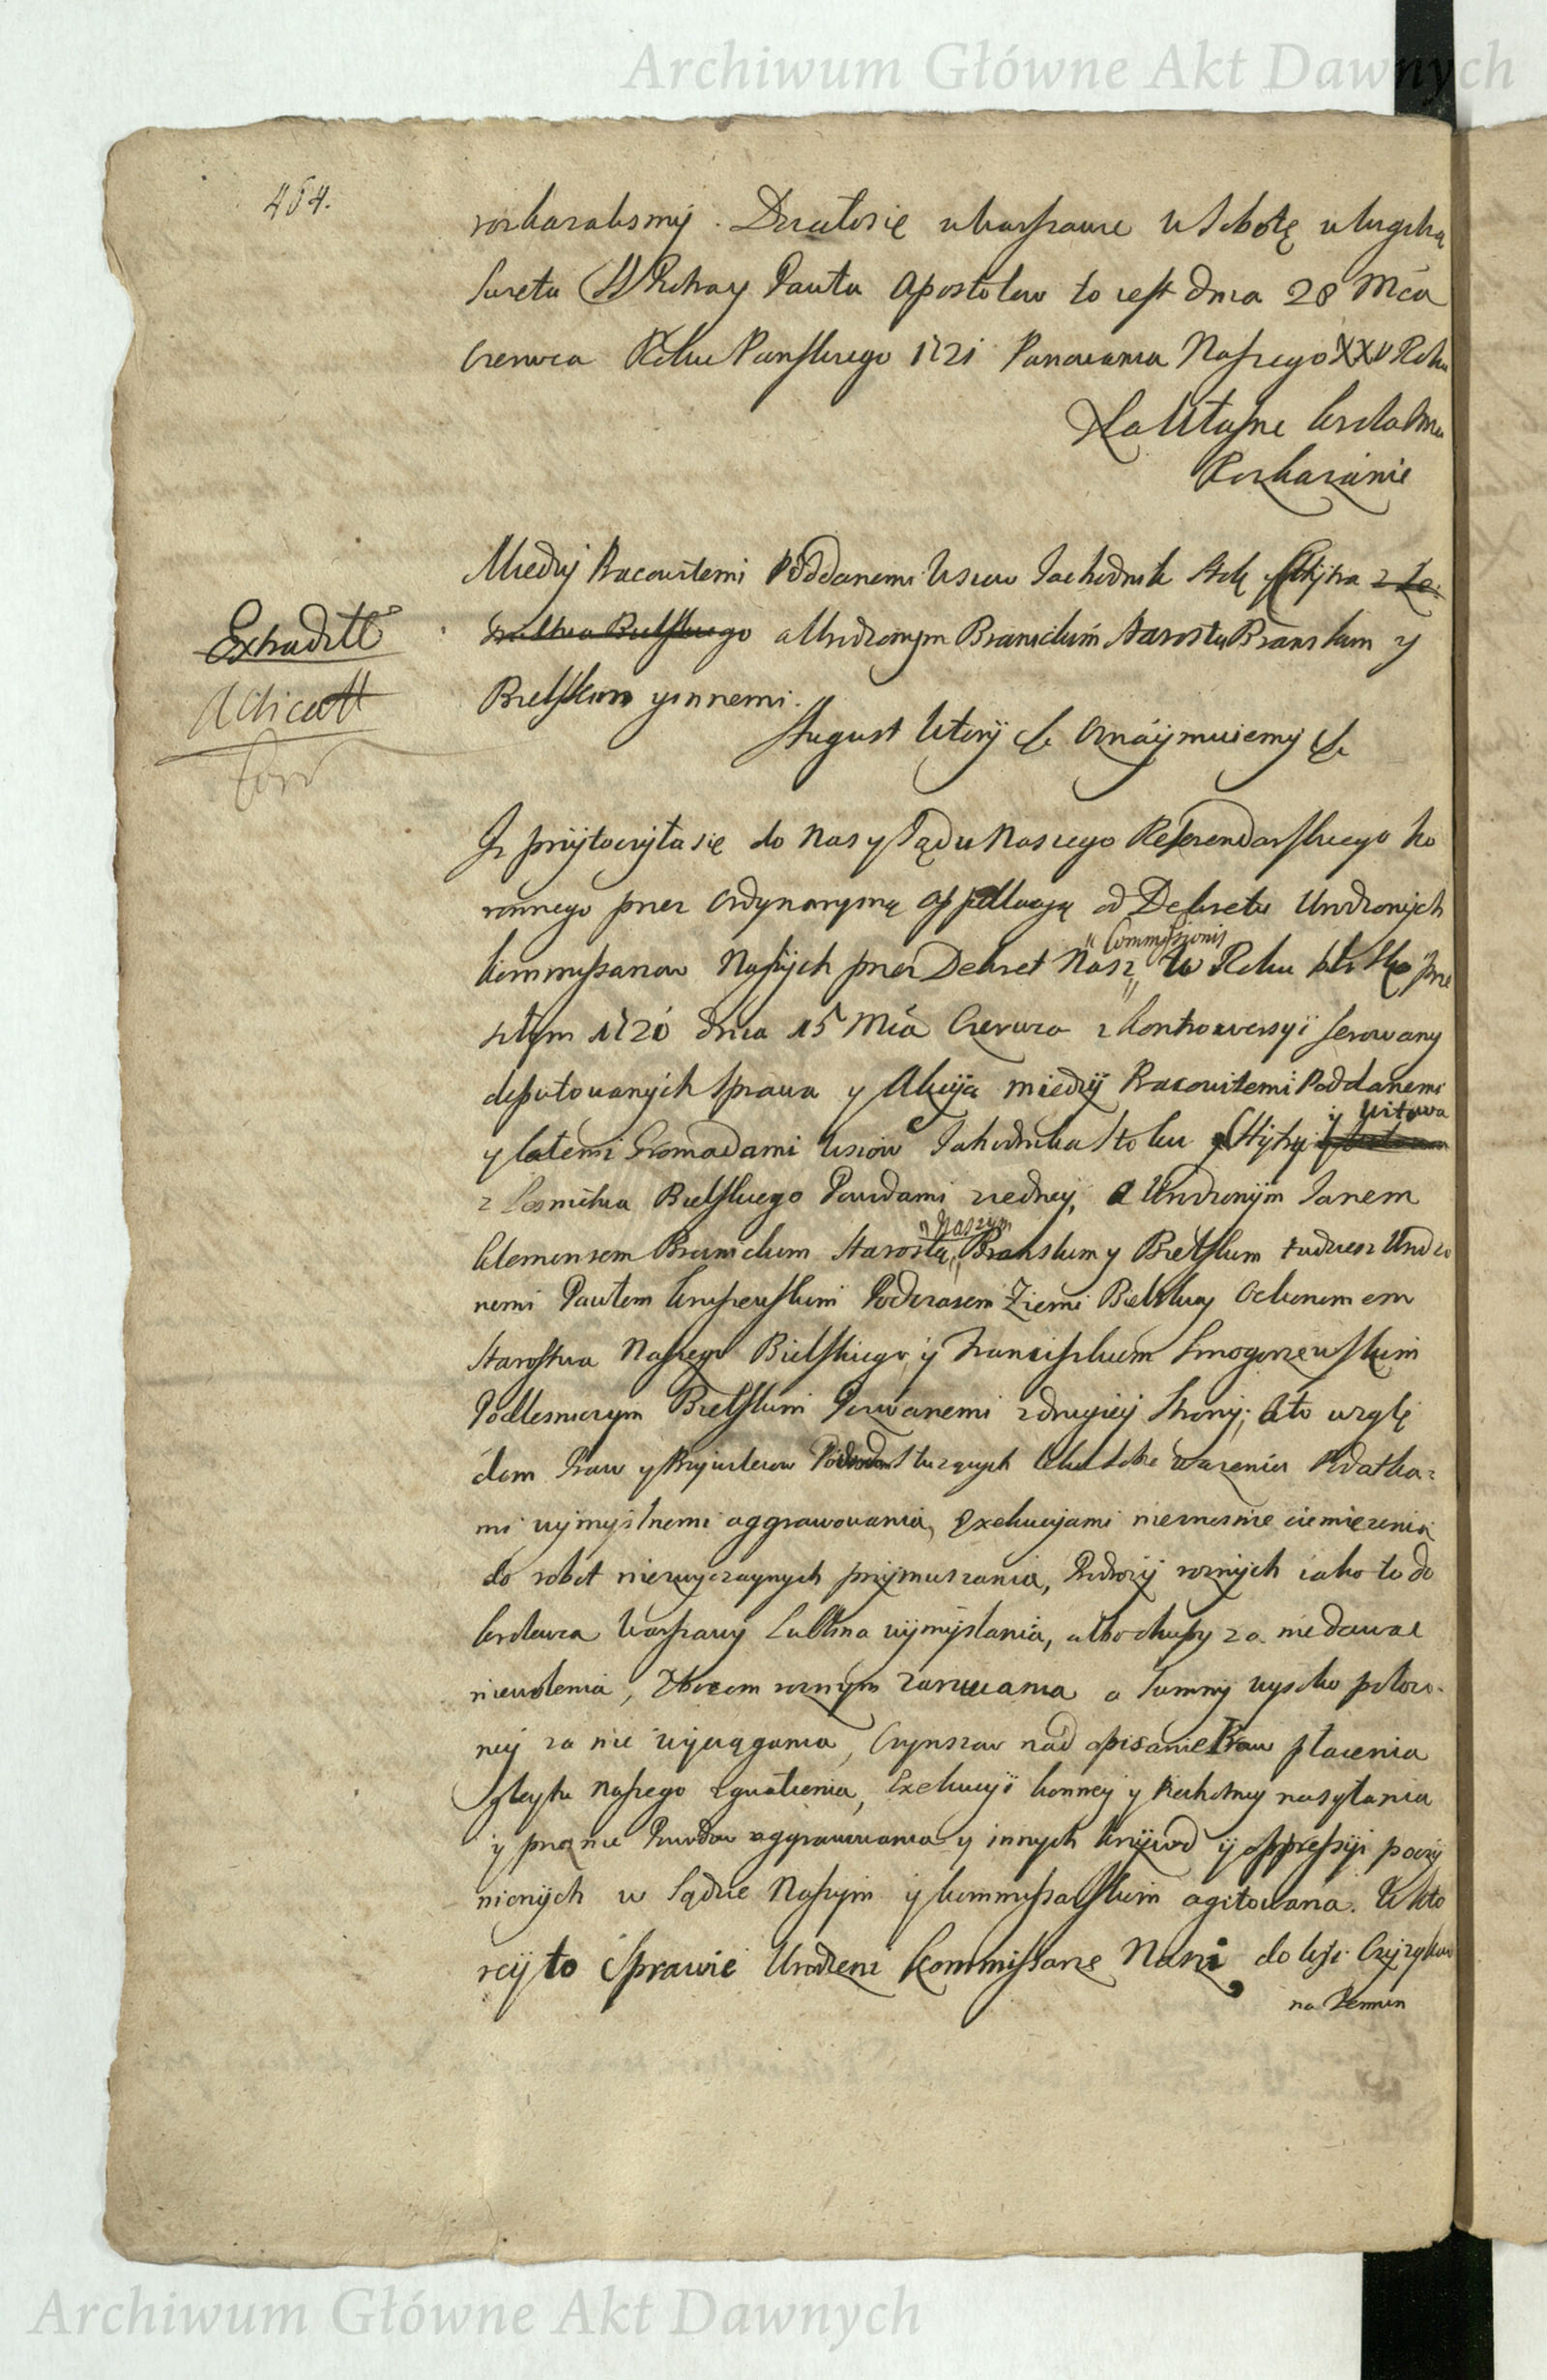 Archiwum Główne Akt Dawnych
454.
rozkazalismy. Działosię w Warszawie w Sobotę w Wigilią
Swięta SS Piotra y Pawła Apostołow to iest dnia 28 Mca
Czerwca Roku Panskiego 1721 Panowania Naszego XXV Roku
Na Własne Krola Jmci
Rozkazanie
Między Pracowitemi Poddanemi Wsiow Jachodnik Stok y z Le
snictwa Bielskiego a Urodzonym Branickim Starostą Branskim y
Bielskim y innemi.
Extradit
August Wtory &c Oznaymuiemy &c
Iz przytoczyła się do Nas y Sądu Naszego Referendarskiego Ko
ronnego przez Ordynaryiną appellacyą od Dekretu Urodzonych
Kommissarzow Naszych przez Dekret Nasz Commissionis w Roku blisko prze
szłym 1720 dnia 15 Mca Czerwca z Kontrowersyi ferowany
deputowanych Sprawa y Akcya między Pracowitemi Poddanemi
y całemi Gromadami Wsiow Jahodnika Stoku y
z Lesnictwa Bielskiego Powodami z iedney, a Urodzonym Janem
Klemensem Branickim Starostą Naszym Branskim y Bielskim tudziesz Urodzo
nemi Pawłem Podczaszem Ziemi Bielskiey Oekonomem
Starostwa Naszego Bielskiego, y Franciszkiem Smogorzewskim
Podlesniczym Bielskim Pozwanemi z drugiey Strony; a to wzglę
dem Praw y Przywileiow Powodom słuzących, podatka-
mi wymyslnemi aggrawowania, Exekucyami nieznosnie ciemięzenia
do robot niezwyczaynych przymuszania, Podrozy roznych iako to do
Krolewca Warszawy Lublina wymyslania, niedawac
niewolenia, Zbozem roznym zarzucania a Summy wysoko połozo-
ney za nie wyciągania, Czynszow nad opisanie Praw płacenia
Gleytu Naszego zgwałcenia, Exekucyi konney y Piechotney nasyłania
y przez nie Powodow aggrawowania y innych krzywd y oppressyi poczy
nionych w Sądzie Naszym y Kommissarskim agitowana. W kto
rey to Sprawie Urodzeni Kommissarze Nasi, do Wsi
na Termin
Archiwum Główne Akt Dawnych